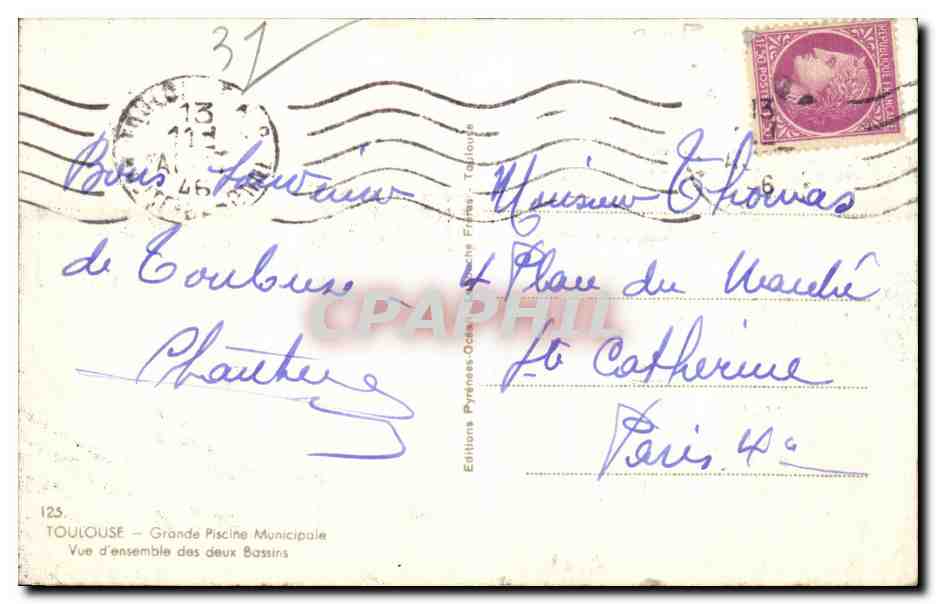 31
13
46
1F,50 POSTES
REPUBLIQUE FRANÇAISE
Bons Souvenirs
de Toulouse
Monsieur Thomas
4 Place du Marché
Ste Catherine
Paris 4e
Editions Pyrénées-Océan Frères - Toulouse
CPAPHIL
125.
TOULOUSE — Grande Piscine Municipale
Vue d'ensemble des deux Bassins